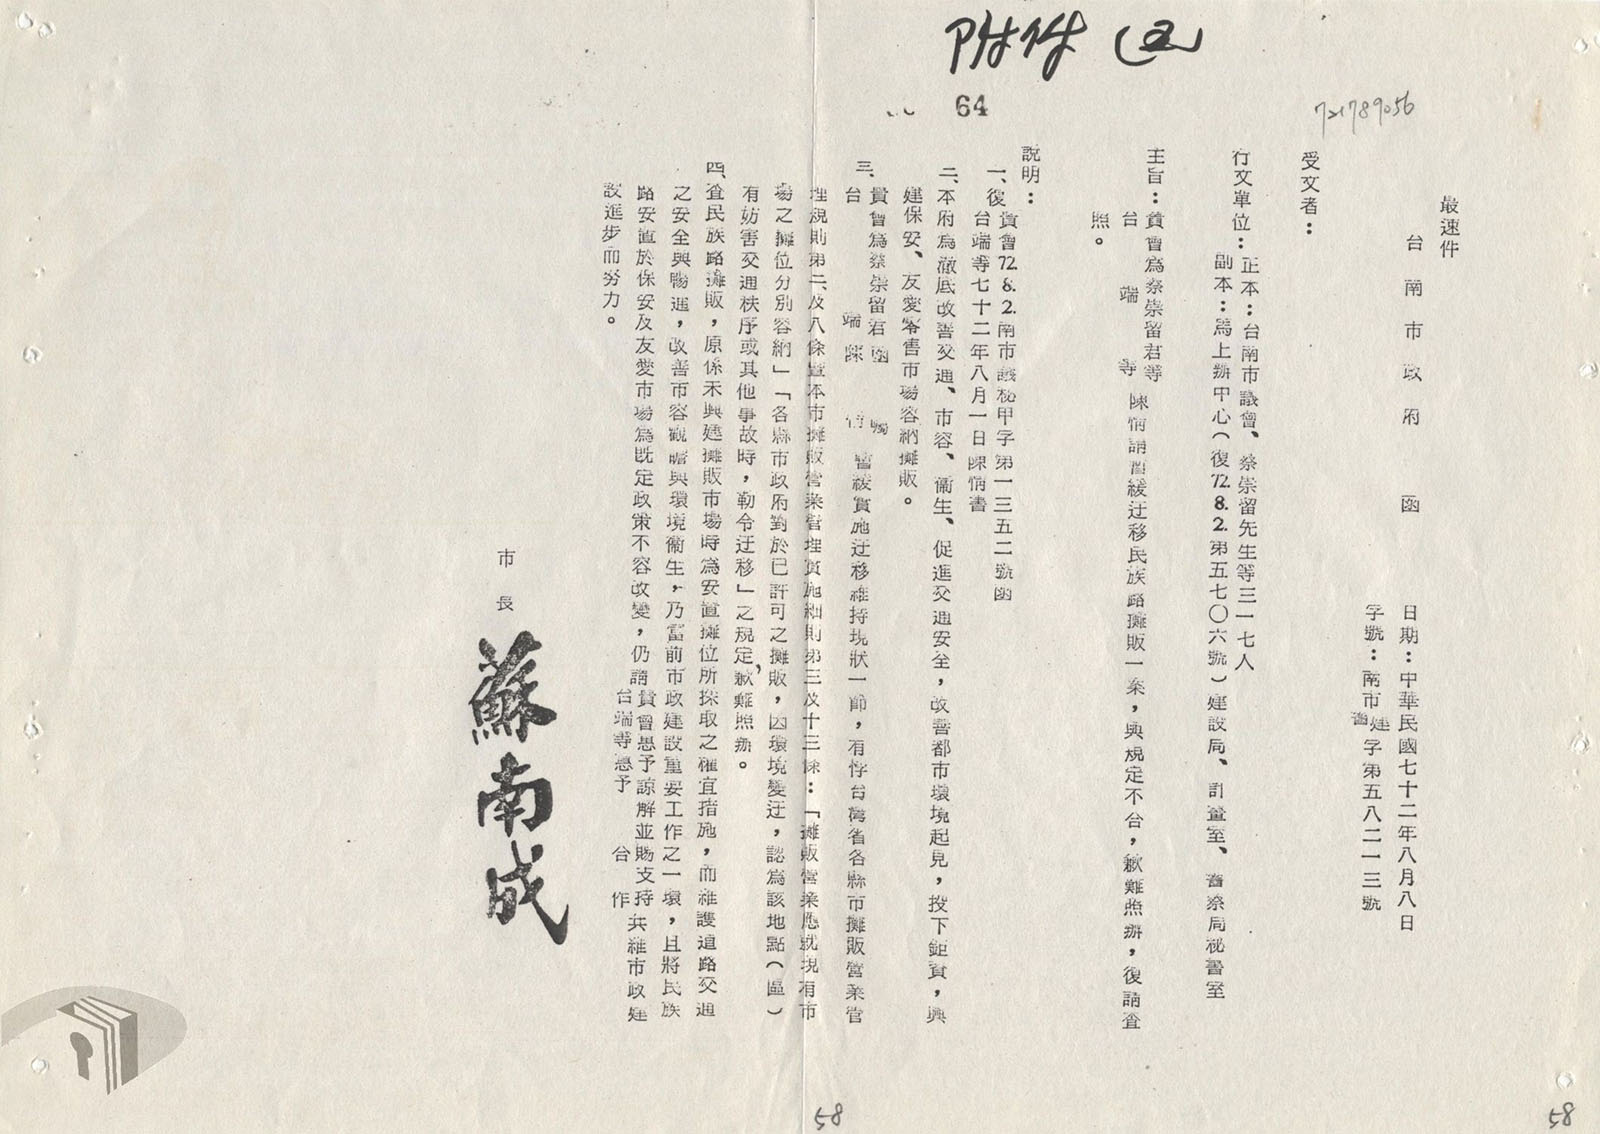 附件(五)
64
721789056
最速件
台南市政府 函
日期：中華民國七十二年八月八日
字號：南市建字第五八二一三號
受文者：
行文單位：正本：台南市議會、蔡崇留先生等三一七人
副本：馬上辦中心（復72.8.2.第五七〇六號）建設局、計畫室、警察局秘書室
主旨：貴會為蔡崇留君等
台端等
陳情請暫緩迁移民族路攤販一案，與規定不合，歉難照辦，復請查
照。
說明：
一、復貴會72.8.2.南市議秘甲字第一三五二號函
台端等七十二年八月一日陳情書
二、本府為澈底改善交通、市容、衛生、促進交通安全，改善都市環境起見，投下鉅資，興
建保安、友愛零售市場容納攤販。
三、貴會為蔡崇留君函囑
台端陳情
暫緩實施迁移維持現狀一節，有悖台灣省各縣市攤販營業管
理規則第二、及八條暨本市攤販營業管理實施細則第三及十三條：「攤販營業應就現有市
場之攤位分別容納」「各縣市政府對於已許可之攤販，因環境變迁，認為該地點（區）
有妨害交通秩序或其他事故時，勒令迁移」之規定，歉難照辦。
四、查民族路攤販，原係未興建攤販市場時為安置攤位所採取之權宜措施，而維護道路交通
之安全與暢通，改善市容觀瞻與環境衛生，乃當前市政建設重要工作之一環，且將民族
路安置於保安及友愛市場為既定政策不容改變，仍請貴會惠予諒解並賜支持
台端等惠予 合作
共維市政建
設進步而努力。
市長 蘇南成
58
58